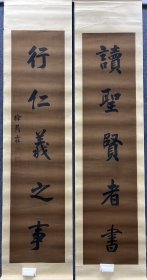 讀聖賢者書
行仁義之事